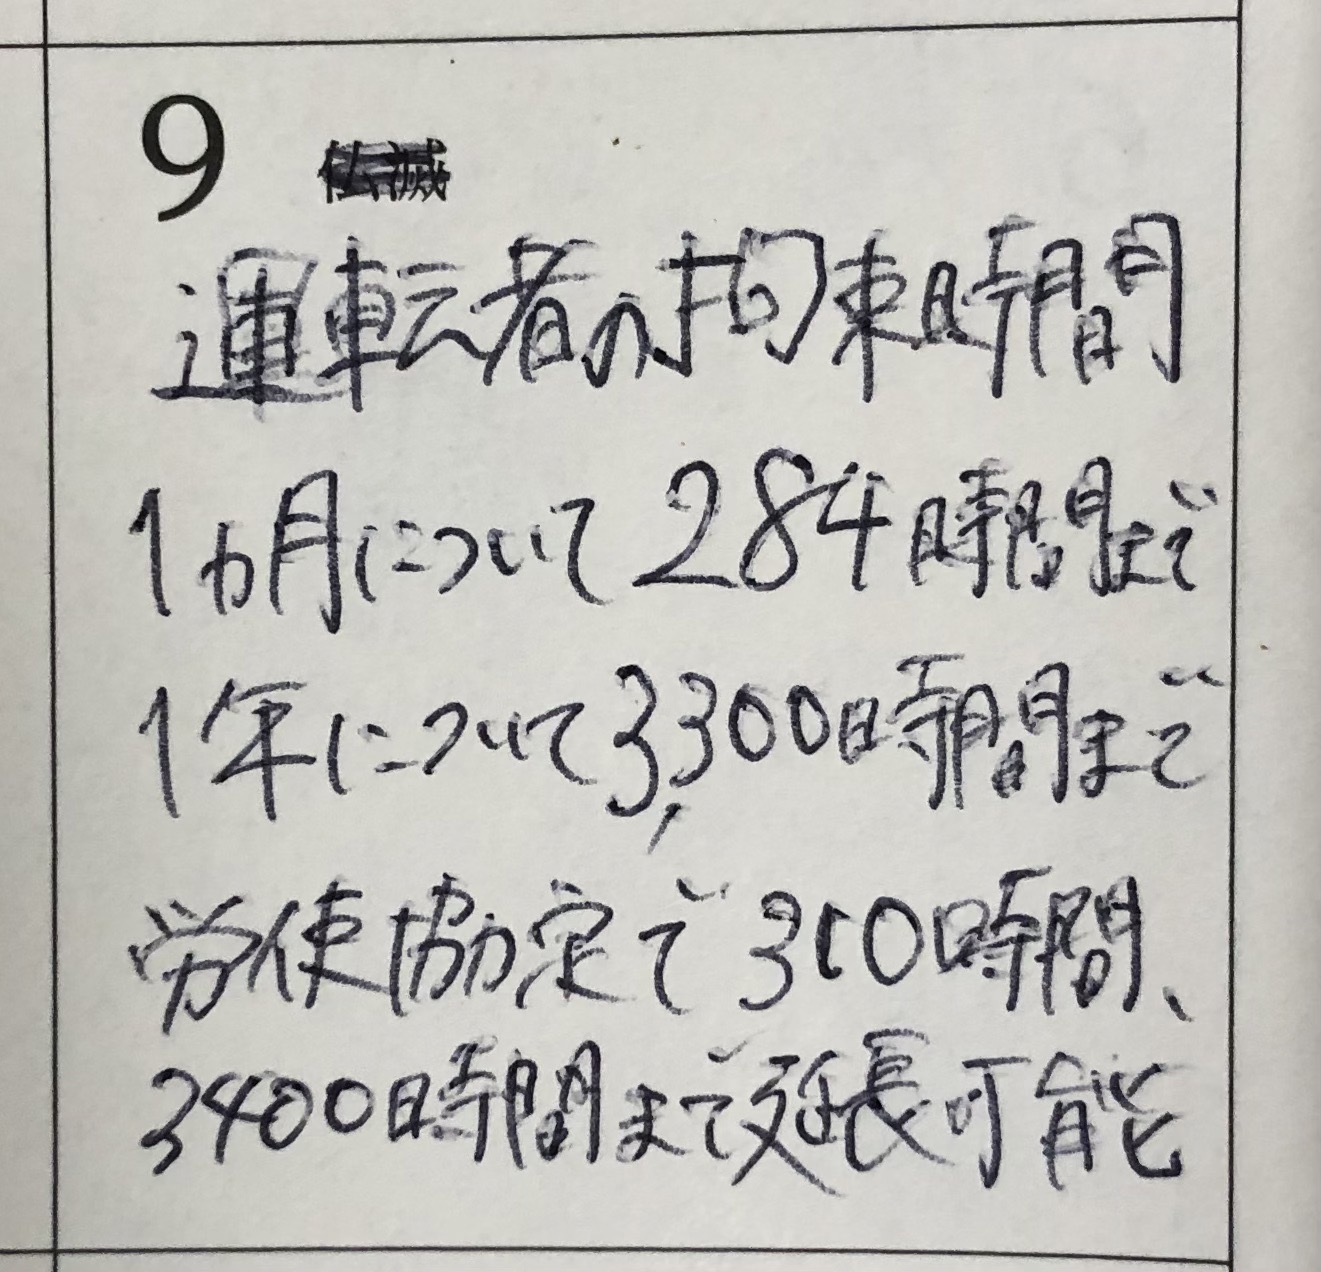 9 仏滅
運転者の拘束時間
1ヵ月について284時間まで
1年について3,300時間まで
労使協定で310時間、
3400時間まで延長可能